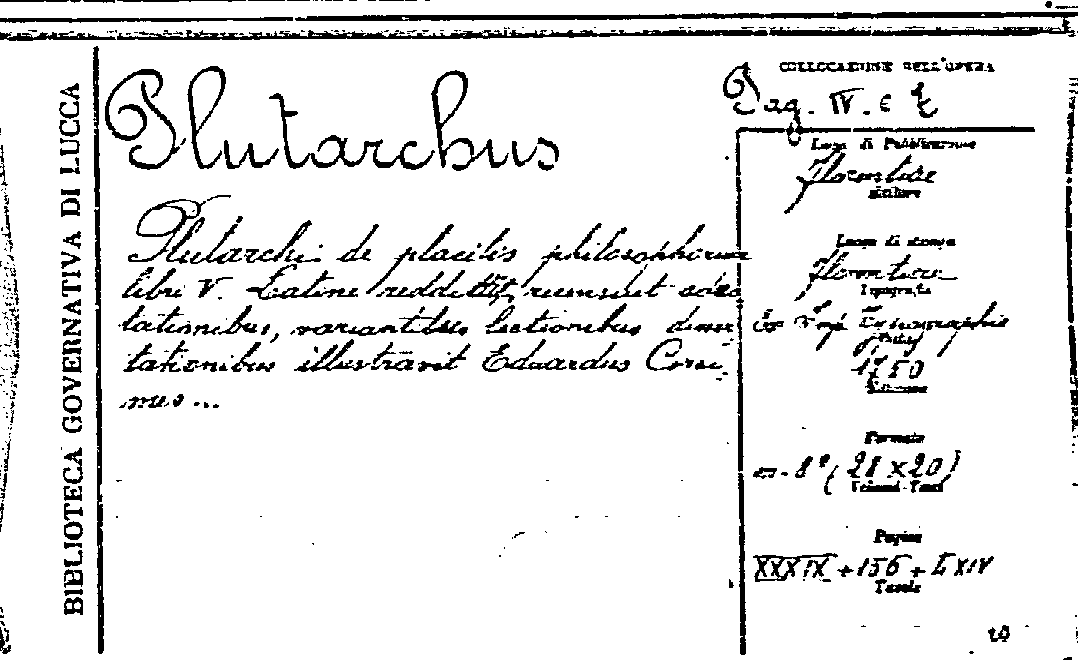 BIBLIOTECA GOVERNATIVA DI LUCCA
Plutarchus
Plutarchi de placitis philosophorum
libri V. Latine reddidit, recensuit adno
tationibus, variantibus lectionibus disser
tationibus illustravit Eduardus Corsi
nus ...
COLLOCAZIONE DELL'OPERA
Pag. IV. e
Luogo di Pubblicazione
Florentiae
Editore
Luogo di stampa
Florentiae
Tipografia
Ex Typographia
1750
Formato
in-8° (28 x 20)
Volumi-Tomi
Pagine
XXXIX + 156 + LXIV
Tavole